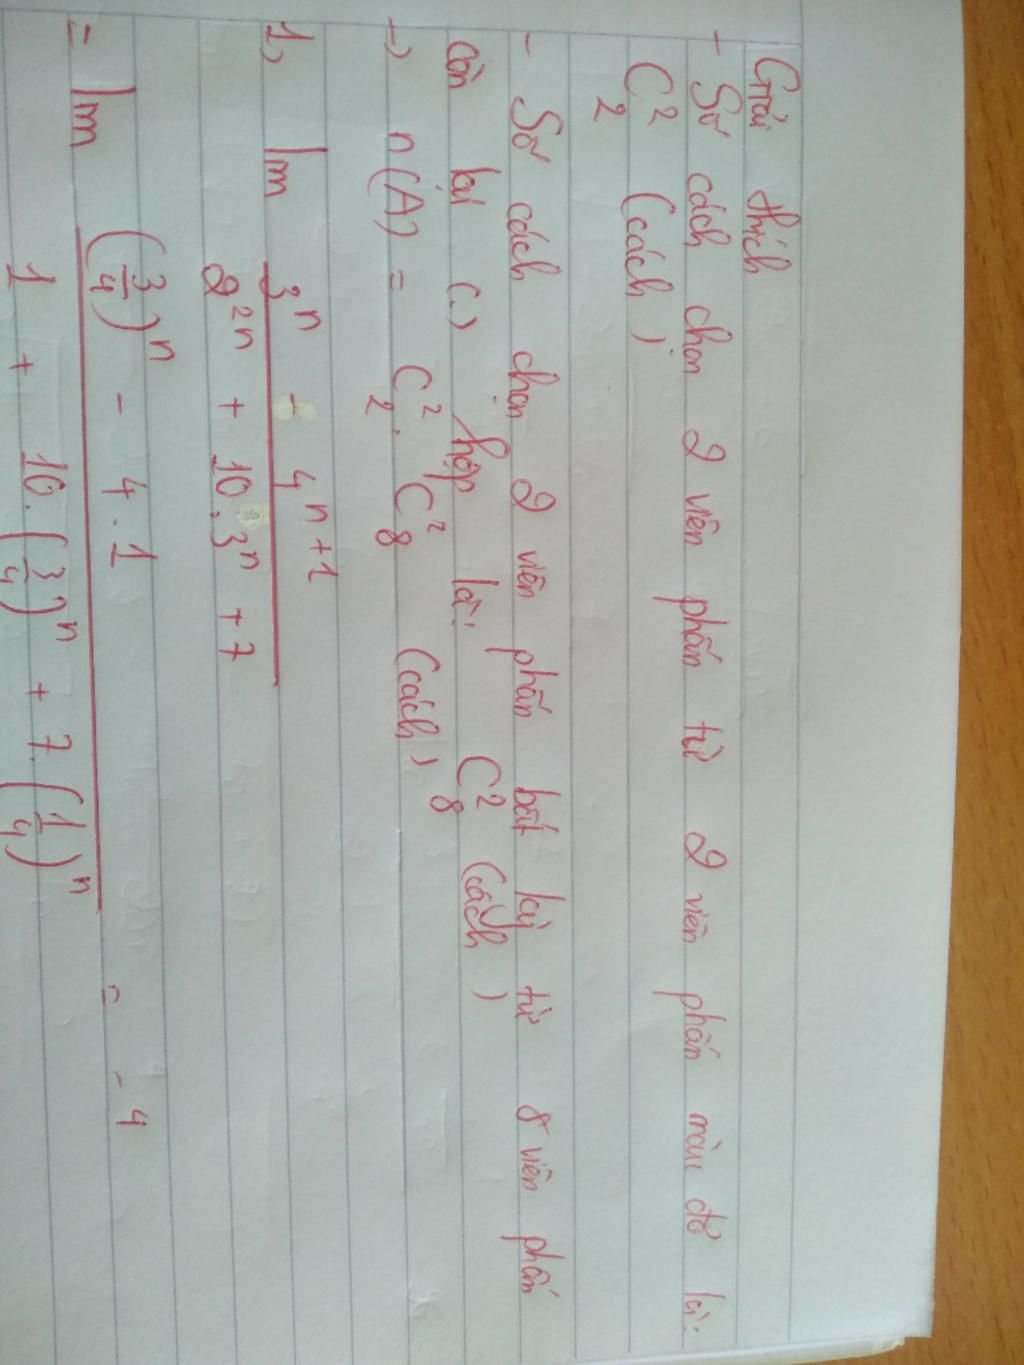 Giải thích
- Số cách chọn 2 viên phấn từ 2 viên phấn màu đỏ là:
C₂² (cách)
- Số cách chọn 2 viên phấn bất kỳ từ 8 viên phấn
còn lại () hộp là: C₈² (cách)
→ n(A) = C₂² . C₈² (cách)
1, lim (3ⁿ - 4ⁿ⁺¹) / (2²ⁿ + 10.3ⁿ + 7)
= lim ((3/4)ⁿ - 4.1) / (1 + 10.(3/4)ⁿ + 7.(1/4)ⁿ) = -4